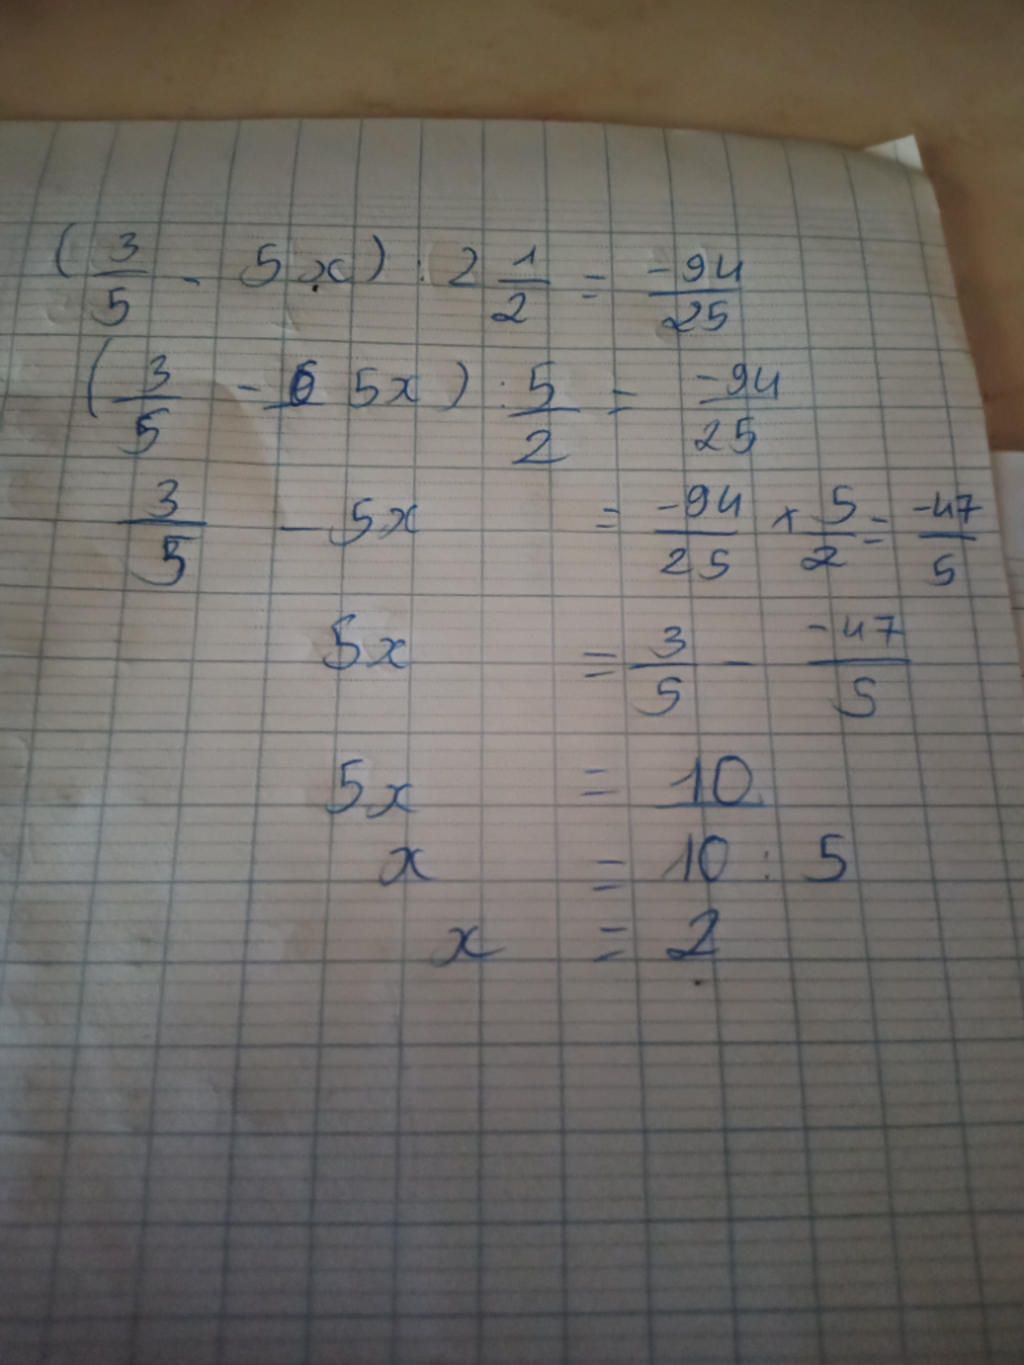 (3/5 - 5x) : 2 1/2 = -94/25
(3/5 - 5x) : 5/2 = -94/25
3/5 - 5x = -94/25 × 5/2 = -47/5
5x = 3/5 - -47/5
5x = 10
x = 10 : 5
x = 2